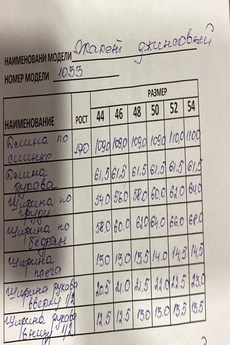 НАИМЕНОВАНИ МОДЕЛИ Жакет джинсовый
НОМЕР МОДЕЛИ 1055
НАИМЕНОВАНИЕ РОСТ РАЗМЕР
44 46 48 50 52 54
Длина по спинке 109,0 109,0 109,0 109,0 110,0 110,0
Длина рукава 61,5 61,5 61,5 61,5 61,5 61,5
Ширина по груди 54,0 56,0 58,0 60,0 62,0 64,0
Ширина по бедрам 58,0 60,0 62,0 64,0 66,0
Ширина плеча 13,0 13,0 13,5 14,0 14,5 14,5
Ширина рукава вверху 1/2 20,5 21,0 21,5 22,0 22,5 23,0
Ширина рукава внизу 1/2 12,5 12,5 13,0 13,0 13,5 13,5